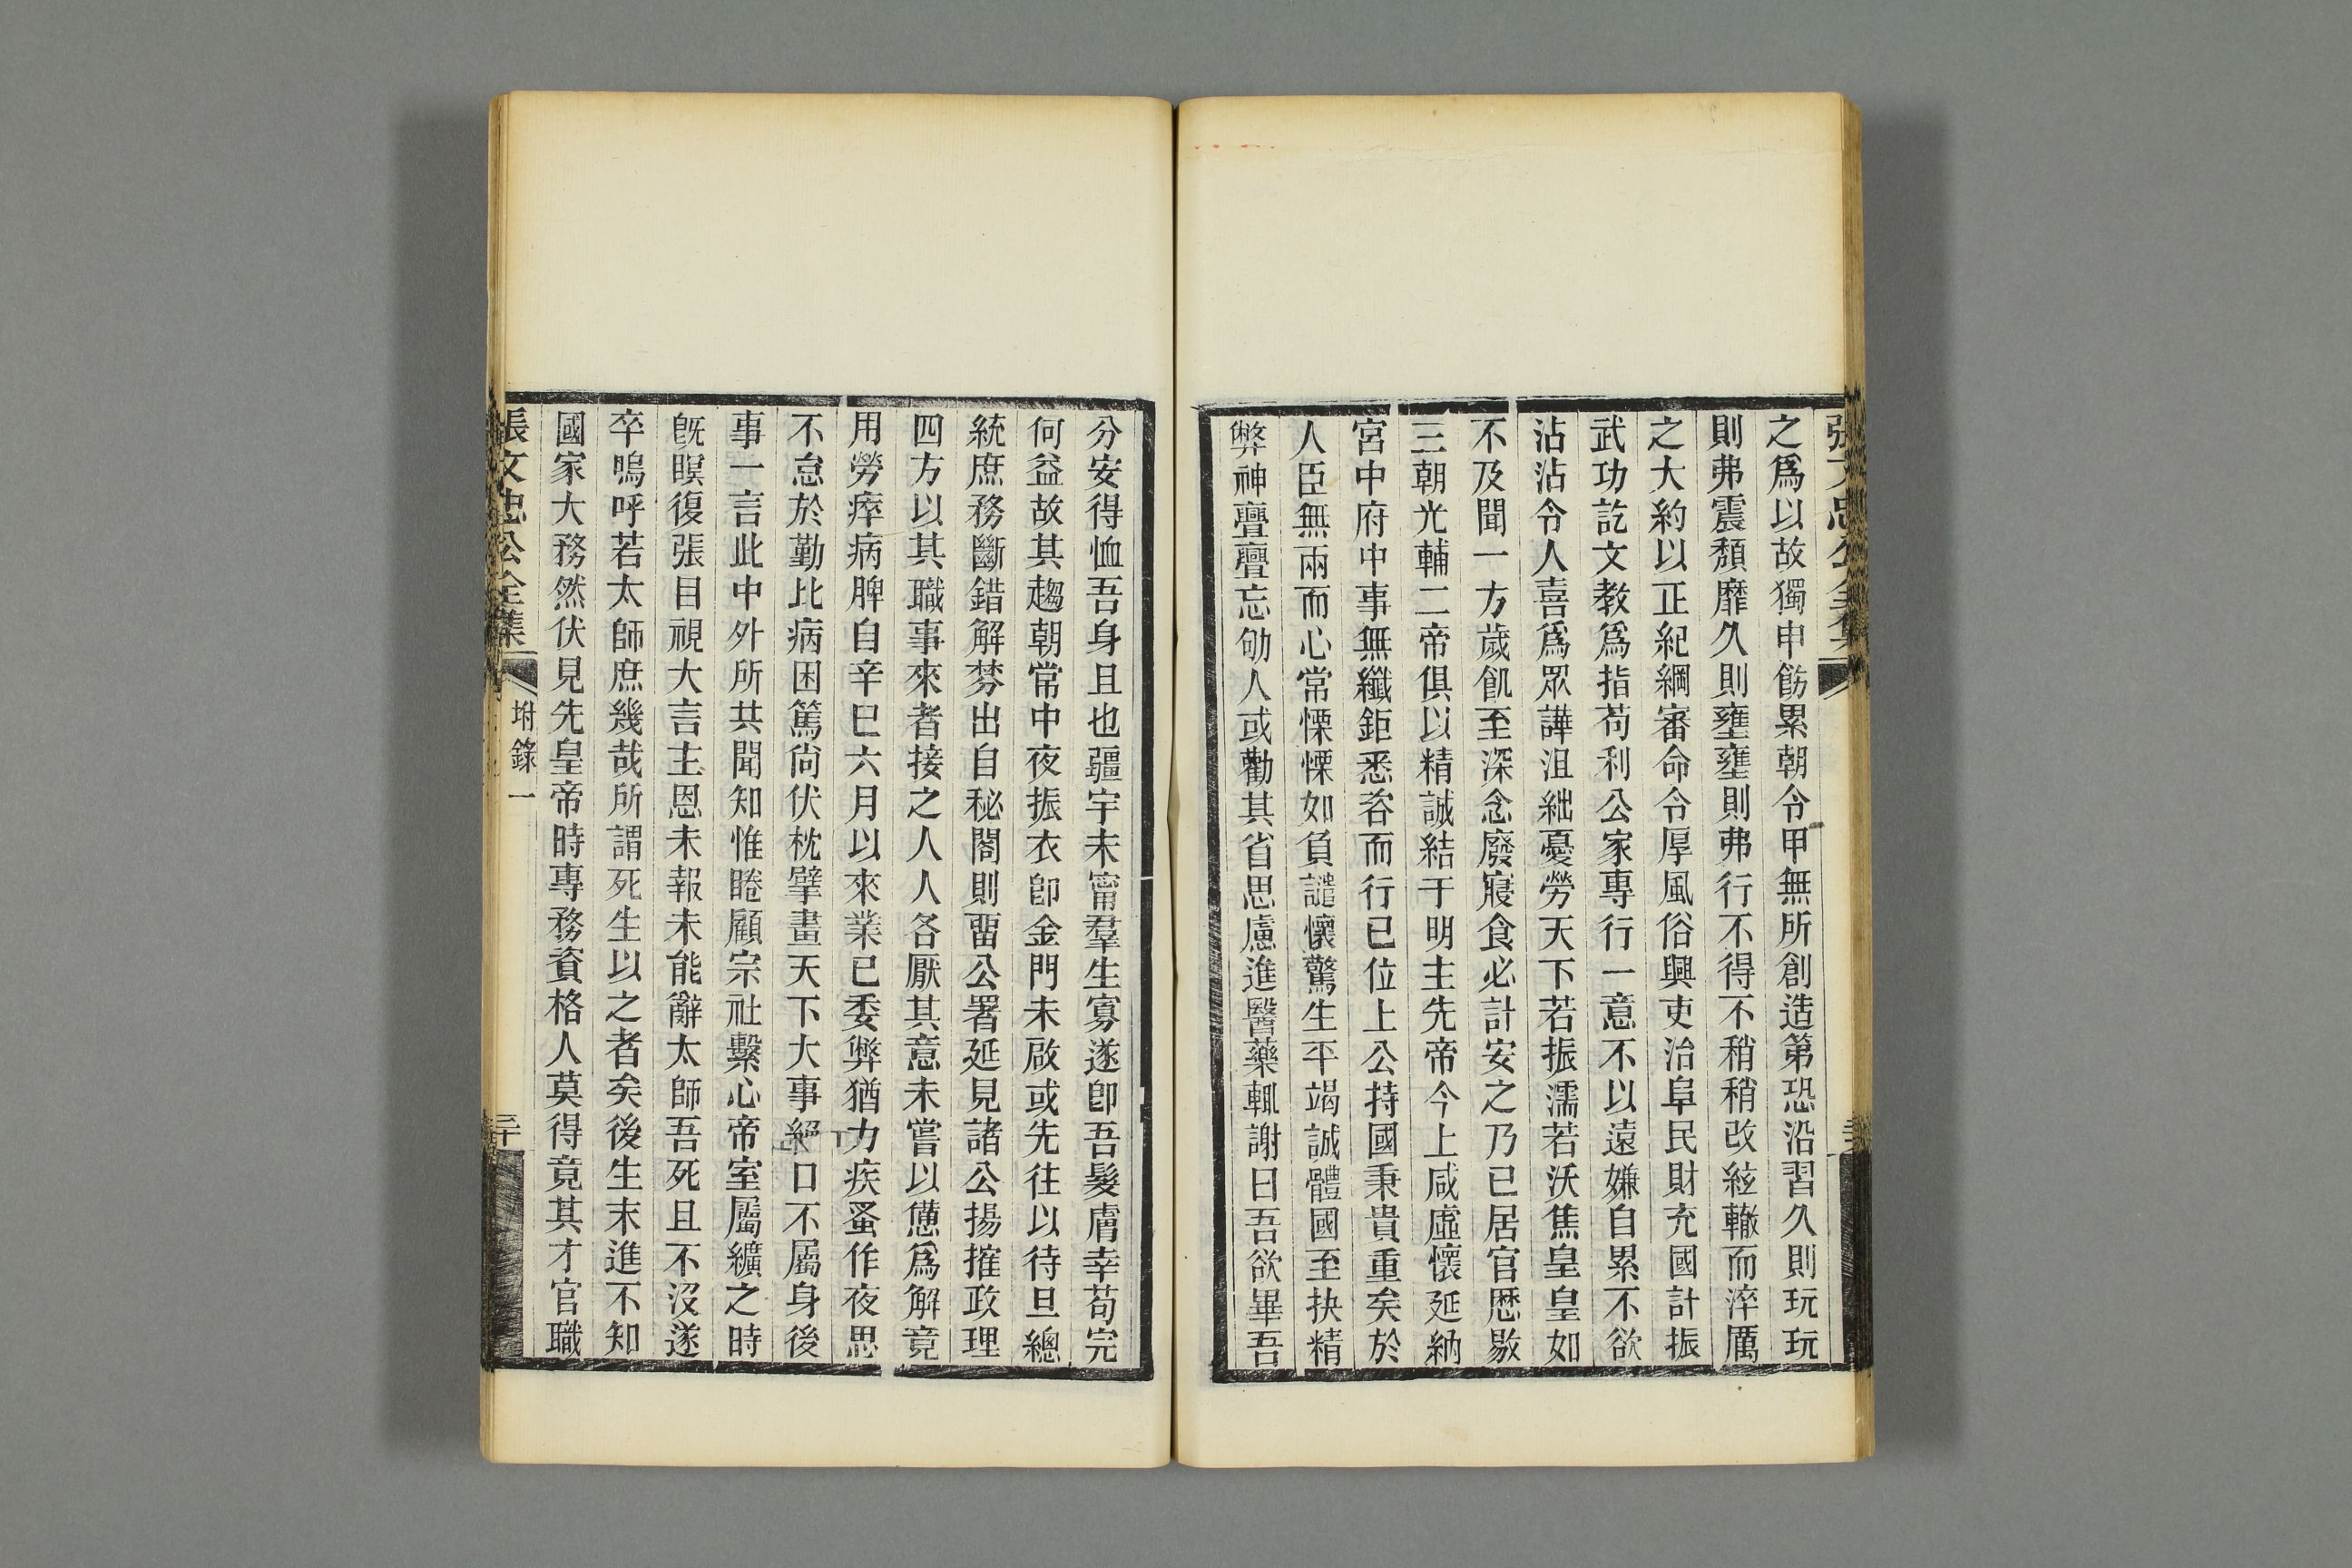 之爲以故獨申飭累朝令甲無所創造第恐沿習久則玩玩
則弗震頹靡久則壅壅則弗行不得不稍稍改絃轍而淬厲
之大約以正紀綱審命令厚風俗興吏治阜民財充國計振
武功訖文教爲指苟利公家專行一意不以遠嫌自累不欲
沾沾令人喜爲眾譁沮絀憂勞天下若振濡若沃焦皇皇如
不及聞一方歲飢至深念廢寢食必計安之乃已居官歷敭
三朝光輔二帝俱以精誠結于明主先帝今上咸虛懷延納
宮中府中事無纖鉅悉咨而行已位上公持國秉貴重矣於
人臣無兩而心常慄慄如負譴懷驚生平竭誠體國至抉精
弊神亹亹忘劬人或勸其省思慮進醫藥輒謝曰吾欲畢吾
分安得恤吾身且也疆宇未甯羣生寡遂卽吾髮膚幸苟完
何益故其趨朝常中夜振衣卽金門未啟或先往以待旦總
統庶務斷錯解棼出自秘閣則畱公署延見諸公揚搉政理
四方以其職事來者接之人人各厭其意未嘗以憊爲解竟
用勞瘁病脾自辛巳六月以來業已委弊猶力疾蚤作夜思
不怠於勤比病困篤尙伏枕擘畫天下大事絕口不屬身後
事一言此中外所共聞知惟睠顧宗社繫心帝室屬纊之時
旣瞑復張目視大言主恩未報未能辭太師吾死且不沒遂
卒嗚呼若太師庶幾哉所謂死生以之者矣後生末進不知
國家大務然伏見先皇帝時專務資格人莫得竟其才官職
張文忠公全集
坿錄一
三十